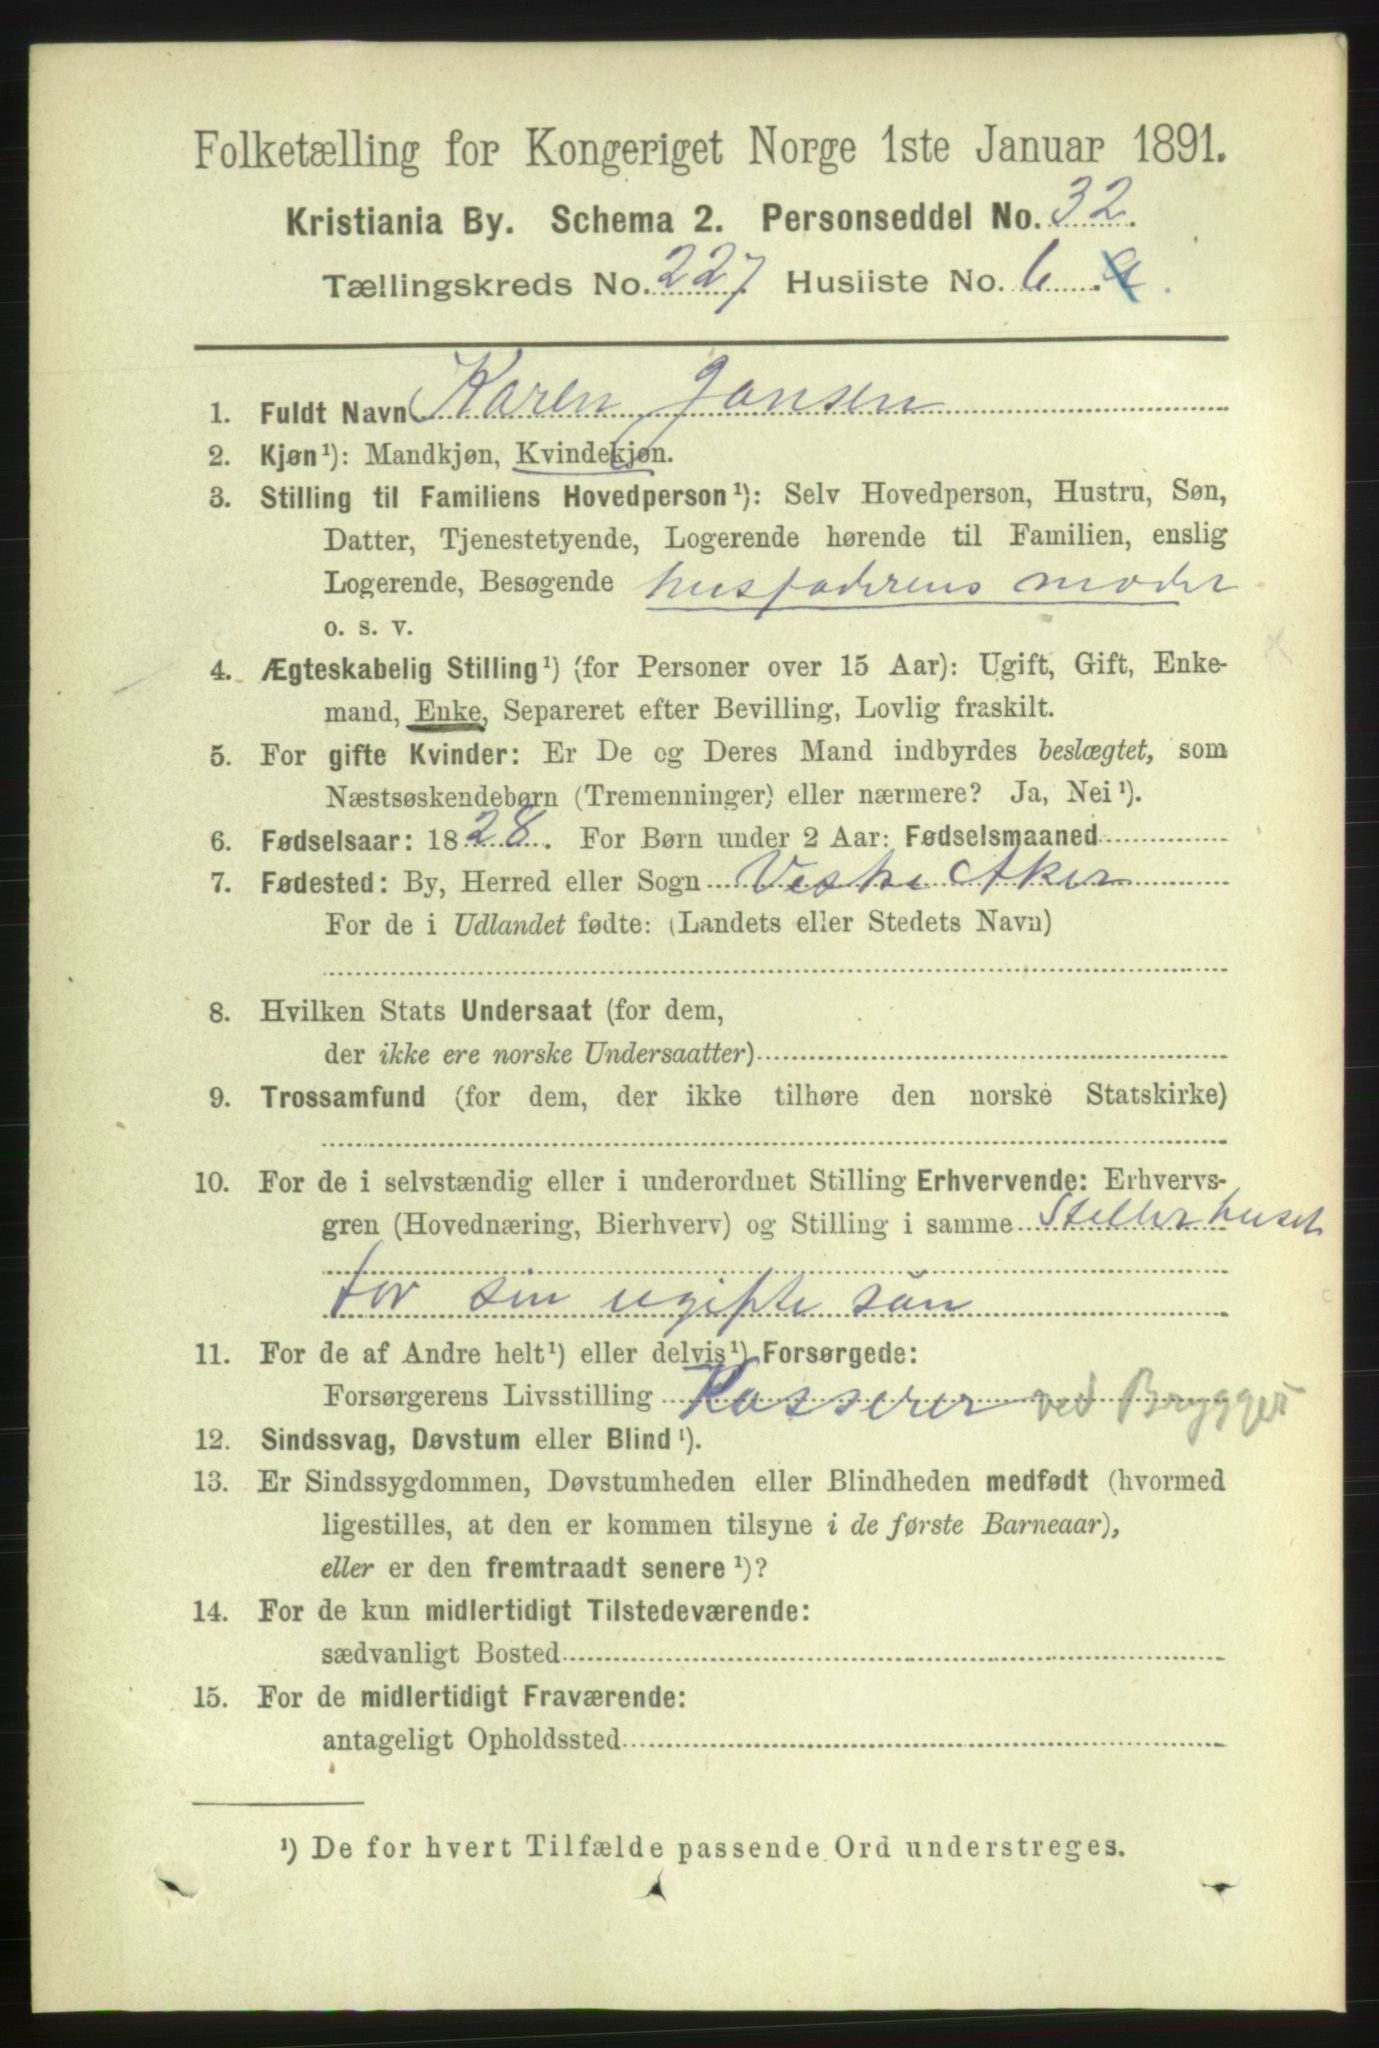 Folketælling for Kongeriget Norge 1ste Januar 1891.
Kristiania By. Schema 2. Personseddel No. 32.
Tællingskreds No. 227 Husliste No. 6 a.
1. Fuldt Navn Karen Jansen
2. Kjøn¹): Mandkjøn, Kvindekjøn.
3. Stilling til Familiens Hovedperson¹): Selv Hovedperson, Hustru, Søn,
Datter, Tjenestetyende, Logerende hørende til Familien, enslig
Logerende, Besøgende husfaderens moder
o. s. v.
4. Ægteskabelig Stilling¹) (for Personer over 15 Aar): Ugift, Gift, Enke-
mand, Enke, Separeret efter Bevilling, Lovlig fraskilt.
5. For gifte Kvinder: Er De og Deres Mand indbyrdes beslægtet, som
Næstsøskendebørn (Tremenninger) eller nærmere? Ja, Nei¹).
6. Fødselsaar: 1828. For Børn under 2 Aar: Fødselsmaaned
7. Fødested: By, Herred eller Sogn Vestre Aker
For de i Udlandet fødte: (Landets eller Stedets Navn)
8. Hvilken Stats Undersaat (for dem,
der ikke ere norske Undersaatter)
9. Trossamfund (for dem, der ikke tilhøre den norske Statskirke)
10. For de i selvstændig eller i underordnet Stilling Erhvervende: Erhvervs-
gren (Hovednæring, Bierhverv) og Stilling i samme Steller huset
for sin ugifte sön
11. For de af Andre helt¹) eller delvis¹) Forsørgede:
Forsørgerens Livsstilling Kasserer ved Bryggeri
12. Sindssvag, Døvstum eller Blind¹).
13. Er Sindssygdommen, Døvstumheden eller Blindheden medfødt (hvormed
ligestilles, at den er kommen tilsyne i de første Barneaar),
eller er den fremtraadt senere¹)?
14. For de kun midlertidigt Tilstedeværende:
sædvanligt Bosted
15. For de midlertidigt Fraværende:
antageligt Opholdssted
¹) De for hvert Tilfælde passende Ord understreges.